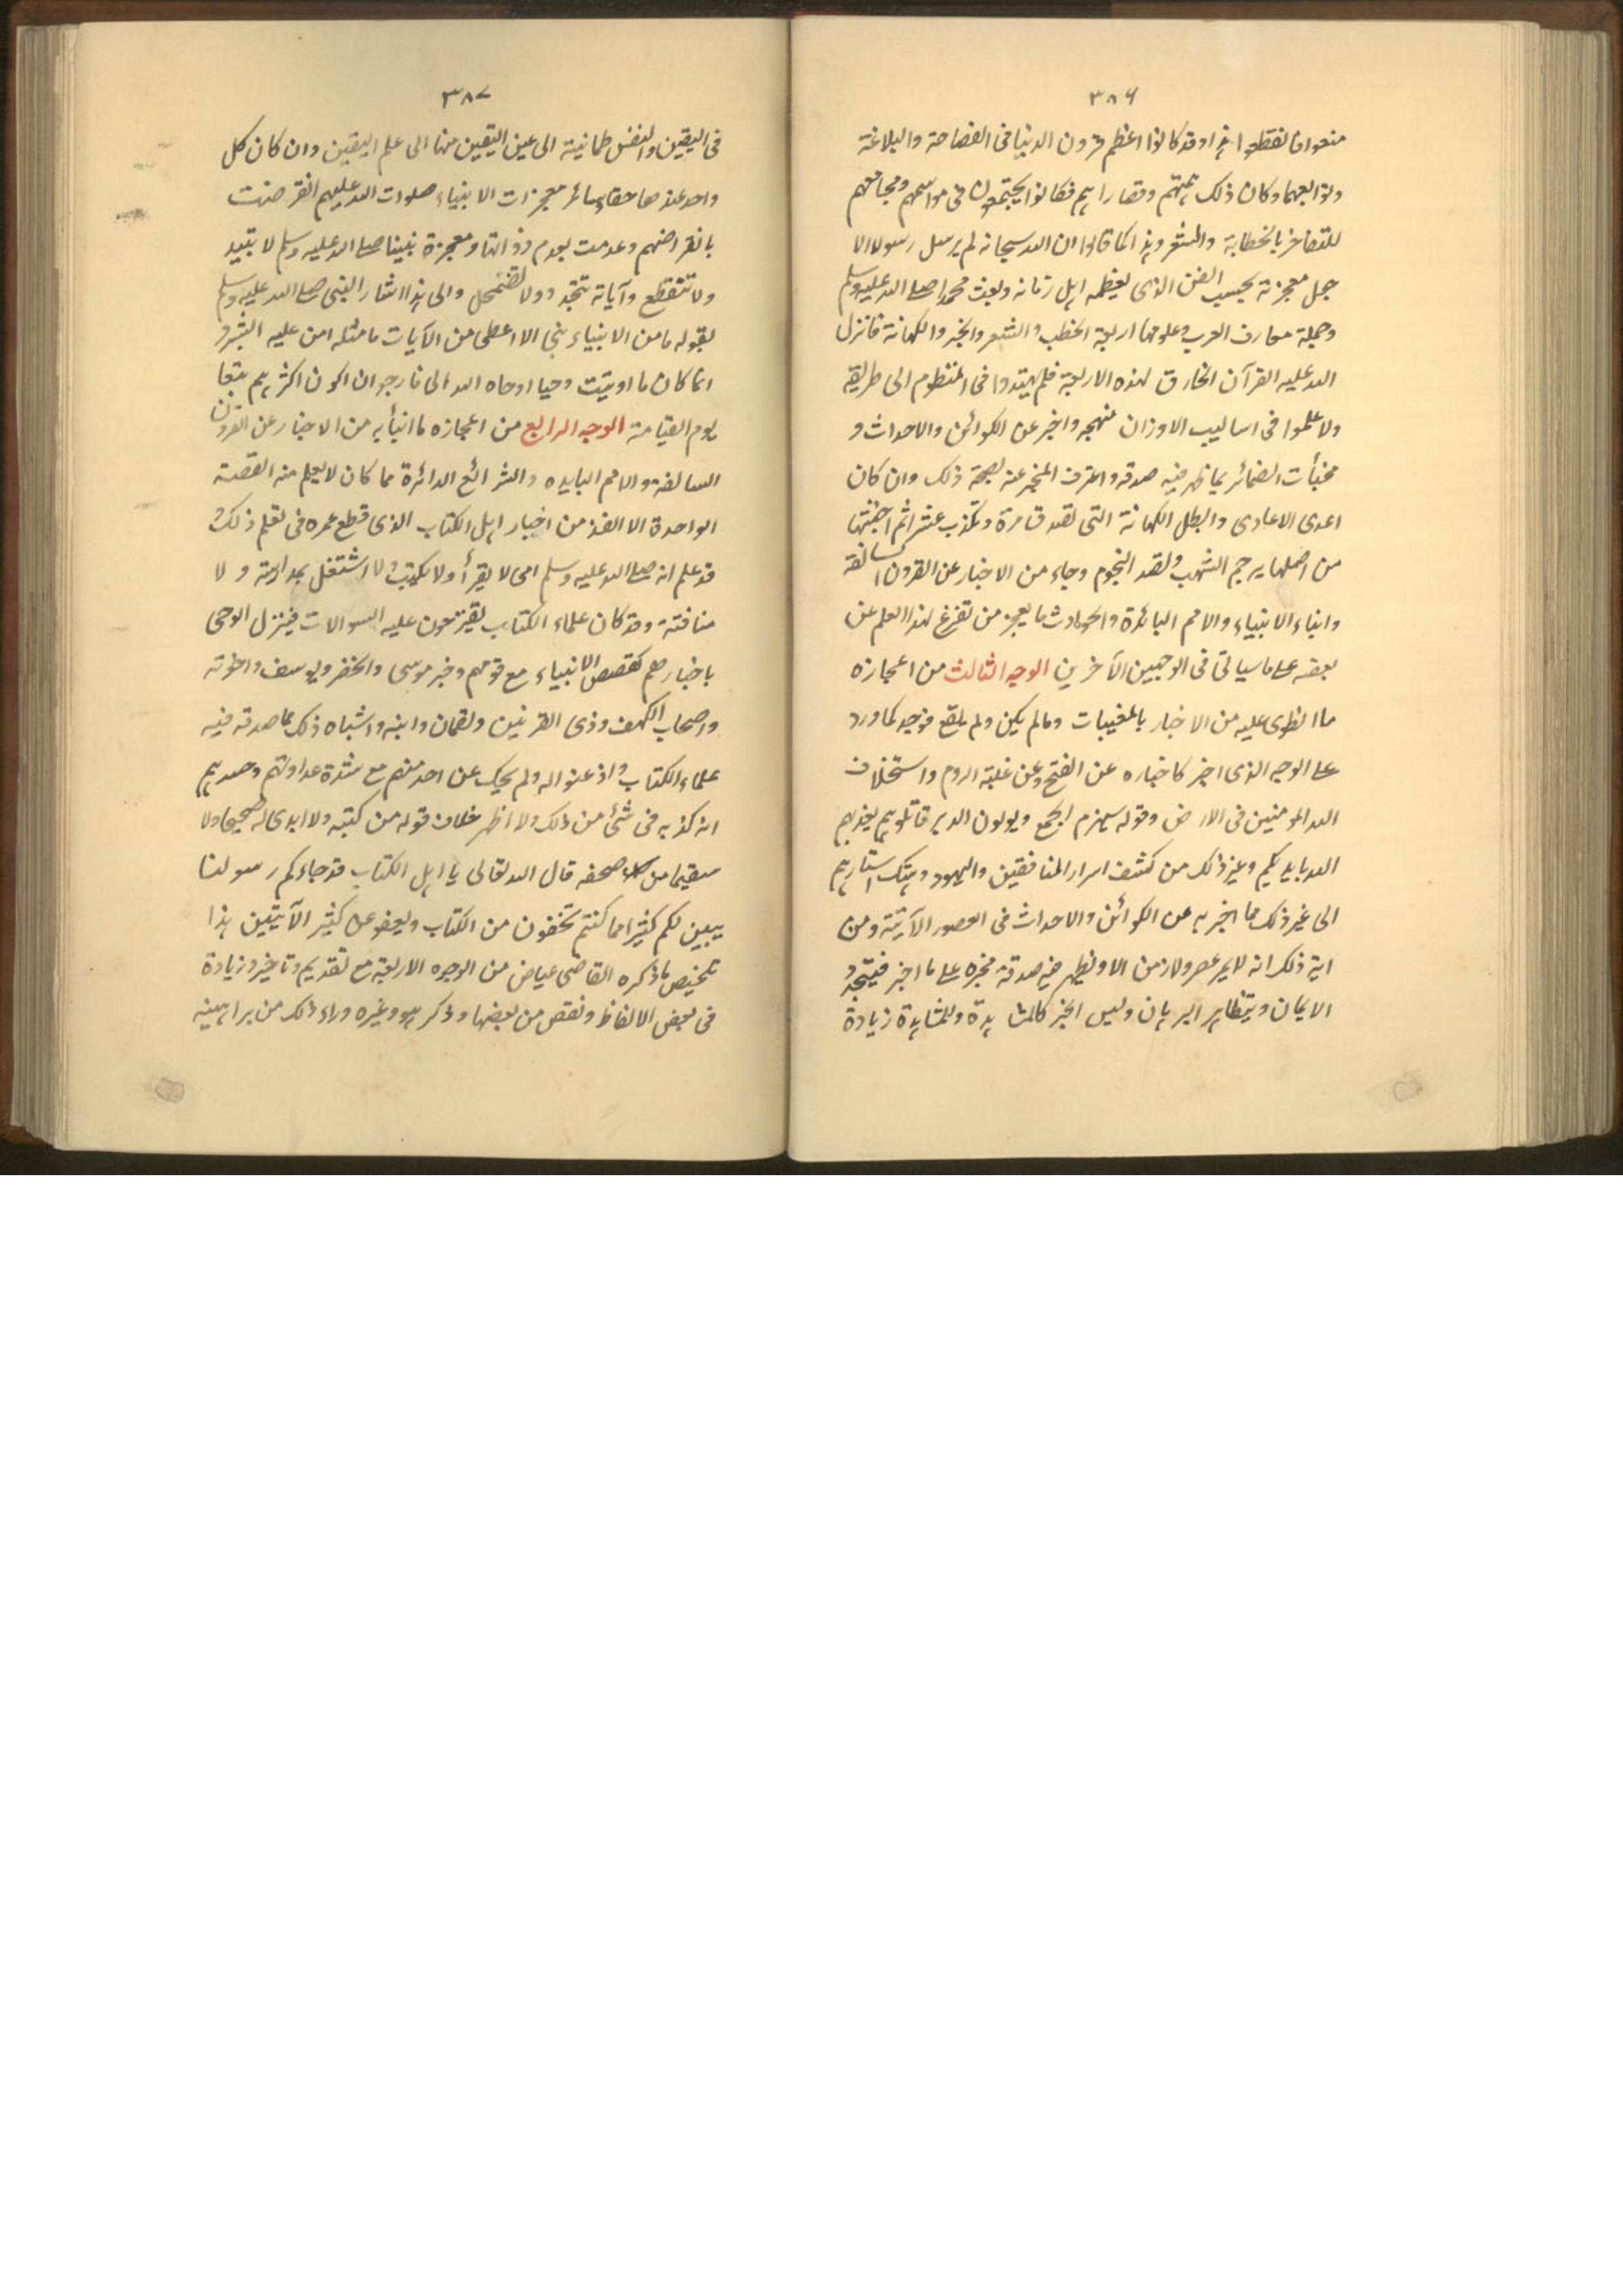 ٣٨٦
منعوا فانقطعوا هذا وقد كانوا اعظم قرون الدنيا فى الفصاحة والبلاغة
وتوابعهما وكان ذلك همتهم وقصاراهم فكانوا يجتمعون فى مواسمهم ومجامعهم
للتفاخر بالخطابة والشعر وهذا كما قالوا ان الله سبحانه لم يرسل رسولا الا
جعل معجزته بحسب الفن الذى يعظمه اهل زمانه وبعث محمدا صلى الله عليه وسلم
وجملة معارف العرب وعلومها اربعة الخطب والشعر والخبر والكهانة فانزل
الله عليه القرآن الخارق لهذه الاربعة فلم يهتدوا فى المنظوم الى طريقه
ولا علموا فى اساليب الاوزان منهجه واخبر عن الكوائن والاحداث و
مخبأت الضمائر بما ظهر فيه صدقه واعترف المخبر عنه بصحة ذلك وان كان
اعدى الاعادى وابطل الكهانة التى تصدق مرة وتكذب عشرا ثم اجتثها
من اصلها يرجم الشهب ولقد النجوم وجاء من الاخبار عن القرون السالفة
وانباء الانبياء والامم البائدة والحوادث ما يعجز من تفرغ لهذا العلم عن
بعضه على ما سيأتى فى الوجهين الآخرين الوجه الثالث من اعجازه
ما انطوى عليه من الاخبار بالمغيبات وما لم يكن ولم يقع فوجد كما ورد
على الوجه الذى اخبر كاخباره عن الفتح وعن غلبة الروم واستخلاف
الله المومنين فى الارض وقوله سيهزم الجمع ويولون الدبر قاتلوهم يعذبهم
الله بايديكم وغير ذلك من كشف اسرار المنافقين واليهود وهتك استارهم
الى غير ذلك مما اخبر به عن الكوائن والاحداث فى العصور الآتية ومن
اية ذلك انه لا يمر عصر ولا زمن الا ويظهر فيه صدقة مخبره على ما اخبر فيتجدد
الايمان ويتظاهر البرهان وليس الخبر كالمشاهدة وللمشاهدة زيادة
٣٨٧
فى اليقين والنفس طمانينة الى عين اليقين منها الى علم اليقين وان كان كل
واحد عندها حقا وسائر معجزات الانبياء صلوات الله عليهم انقرضت
بانقراضهم وعدمت بعدم ذواتها ومعجزة نبينا صلى الله عليه وسلم لا تبيد
ولا تنقطع وآياته تتجدد ولا تضمحل والى هذا اشار النبى صلى الله عليه وسلم
بقوله ما من الانبياء نبى الا اعطى من الآيات ما مثله امن عليه البشر و
انما كان ما اوتيت وحيا اوحاه الله الى فارجو ان اكون اكثرهم تبعا
يوم القيامة الوجه الرابع من اعجازه ما انبأ به من الاخبار عن القرون
السالفة والامم البايده والشرائع الداثرة مما كان لا يعلم منه القصة
الواحدة الا الفذ من اخبار اهل الكتاب الذى قطع عمره فى تعلم ذلك و
قد علم انه صلى الله عليه وسلم امى لا يقرأ ولا يكتب ولا اشتغل بمدارسة و لا
مثافنة وقد كان علماء الكتاب يقترحون عليه السوالات فينزل الوحى
باخبارهم كقصص الانبياء مع قومهم وخبر موسى والخضر ويوسف واخوته
واصحاب الكهف وذى القرنين ولقمان وابنه واشباه ذلك مما صدقه فيه
علماء الكتاب واذعنوا له ولم يحك عن احد منهم مع شدة عداوتهم وحسدهم
انه كذبه فى شئ من ذلك ولا اظهر خلاف قوله من كتبه ولا ابدى له صحيحا ولا
سقيما من صحفه قال الله تعالى يا اهل الكتاب قد جاءكم رسولنا
يبين لكم كثيرا مما كنتم تخفون من الكتاب ويعفو عن كثير الآيتين هذا
تلخيص ما ذكره القاضى عياض من الوجوه الاربعة مع تقديم وتاخير وزيادة
فى بعض الالفاظ ونقص من بعضها وذكر هو وغيره وراء ذلك من براهينه